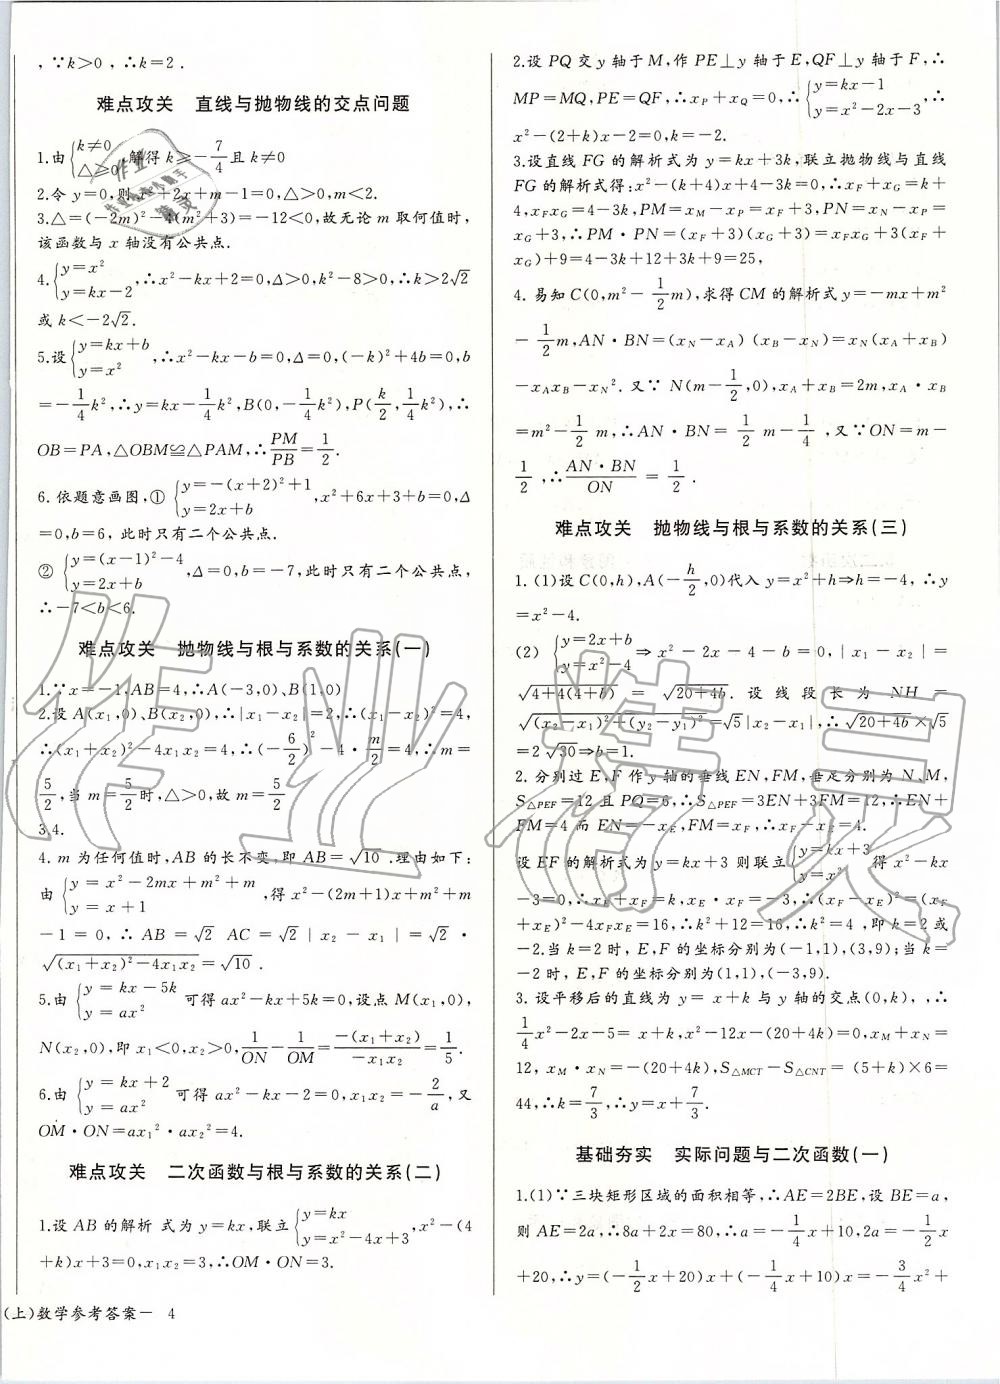 ，∵k＞0，∴k=2．
难点攻关　直线与抛物线的交点问题
1.由{k≠0 △≥0,解得 k≥-7/4且 k≠0
2.令 y=0,则 x²+2x+m-1=0,△>0,m<2.
3.△=(-2m)²-4(m²+3)=-12<0,故无论 m 取何值时,
该函数与 x 轴没有公共点.
4.{y=x² y=kx-2,∴x²-kx+2=0,Δ>0,k²-8>0,∴k>2√2
或 k<-2√2.
5.设{y=kx+b y=x²,∴x²-kx-b=0,Δ=0,(-k)²+4b=0,b
=-1/4k²,∴y=kx-1/4k²,B(0,-1/4k²),P(k/2,1/4k²),∴
OB=PA,△OBM≌△PAM,∴PM/PB=1/2.
6. 依题意画图,①{y=-(x+2)²+1 y=2x+b,x²+6x+3+b=0,Δ
=0,b=6, 此时只有二个公共点.
②{y=(x-1)²-4 y=2x+b,Δ=0,b=-7,此时只有二个公共点,
∴-7<b<6.
难点攻关　抛物线与根与系数的关系(一)
1.∵x=-1,AB=4,∴A(-3,0),B(1,0)
2.设 A(x₁,0),B(x₂,0),∴|x₁-x₂|=2,∴(x₁-x₂)²=4,
∴(x₁+x₂)²-4x₁x₂=4,∴(-6/2)²-4·m/2=4,∴m=
5/2,当 m=5/2时,△>0,故 m=5/2
3.4.
4. m 为任何值时,AB 的长不变,即 AB=√10.理由如下:
由{y=x²-2mx+m²+m y=x+1,得 x²-(2m+1)x+m²+m
-1=0,∴AB=√2 AC=√2|x₂-x₁|=√2·
√(x₁+x₂)²-4x₁x₂=√10.
5.由{y=kx-5k y=ax² 可得 ax²-kx+5k=0,设点 M(x₁,0),
N(x₂,0),即 x₁<0,x₂>0,1/ON-1/OM=-(x₁+x₂)/-x₁x₂=1/5.
6.由{y=kx+2 y=ax² 可得 ax²-kx-2=0,x₁x₂=-2/a,又
OM·ON=ax₁²·ax₂²=4.
难点攻关　二次函数与根与系数的关系(二)
1.设 AB 的解析 式为 y=kx,联立{y=kx y=x²-4x+3,x²-(4
+k)x+3=0,x₁x₂=3,∴OM·ON=3.
(上)数学参考答案— 4
2.设 PQ 交 y 轴于 M,作 PE⊥y 轴于 E,QF⊥y 轴于 F,∴
MP=MQ,PE=QF,∴x_P+x_Q=0,∴{y=kx-1 y=x²-2x-3,∴
x²-(2+k)x-2=0,k=-2.
3.设直线 FG 的解析式为 y=kx+3k,联立抛物线与直线
FG 的解析式得:x²-(k+4)x+4-3k=0,∴x_F+x_G=k+
4,x_Fx_G=4-3k,PM=x_M-x_P=x_F+3,PN=x_N-x_P=
x_G+3,∴PM·PN=(x_F+3)(x_G+3)=x_Fx_G+3(x_F+
x_G)+9=4-3k+12+3k+9=25,
4. 易知 C(0,m²-1/2m),求得 CM 的解析式 y=-mx+m²
-1/2m,AN·BN=(x_N-x_A)(x_B-x_N)=x_N(x_A+x_B)
-x_Ax_B-x_N². 又∵ N(m-1/2,0),x_A+x_B=2m,x_A·x_B
=m²-1/2m,∴AN·BN=1/2m-1/4,又∵ON=m-
1/2,∴AN·BN/ON=1/2.
难点攻关　抛物线与根与系数的关系(三)
1. (1)设 C(0,h),A(-h/2,0)代入 y=x²+h⇒h=-4, ∴y
=x²-4.
(2) {y=2x+b y=x²-4⇒x²-2x-4-b=0,|x₁-x₂|=
√4+4(4+b)=√20+4b.设线段长为 NH=
√(x₂-x₁)²+(y₂-y₁)²=√5|x₂-x₁|,∴√20+4b×√5
=2√30⇒b=1.
2. 分别过 E,F 作 y 轴的垂线 EN,FM,垂足分别为 N、M,
S△PEF=12 且 PQ=6,∴S△PEF=3EN+3FM=12,∴EN+
FM=4 而 EN=-x_E,FM=x_F,∴x_F-x_E=4.
设 EF 的解析式为 y=kx+3 则联立{y=kx+3 y=x² 得 x²-kx
-3=0,∴x_E+x_F=k,x_E·x_F=-3,∴(x_F-x_E)²=(x_F
+x_E)²-4x_Fx_E=16,∴k²+12=16,∴k²=4,即 k=2 或
-2.当 k=2 时,E,F 的坐标分别为(-1,1),(3,9);当 k=
-2 时,E,F 的坐标分别为(1,1),(-3,9).
3. 设平移后的直线为 y= x+k 与 y 轴的交点(0,k), ,∴
1/4x²-2x-5= x+k,x²-12x-(20+4k)=0,x_M+x_N=
12,x_M·x_N=-(20+4k),S△MCT-S△CNT=(5+k)×6=
44,∴k=7/3,∴y=x+7/3.
基础夯实　实际问题与二次函数(一)
1.(1)∵三块矩形区域的面积相等,∴AE=2BE,设 BE=a,
则 AE=2a,∴8a+2x=80,∴a=-1/4x+10,2a=-1/2x
+20,∴y=(-1/2x+20)x+(-1/4x+10)x=-3/4x²+